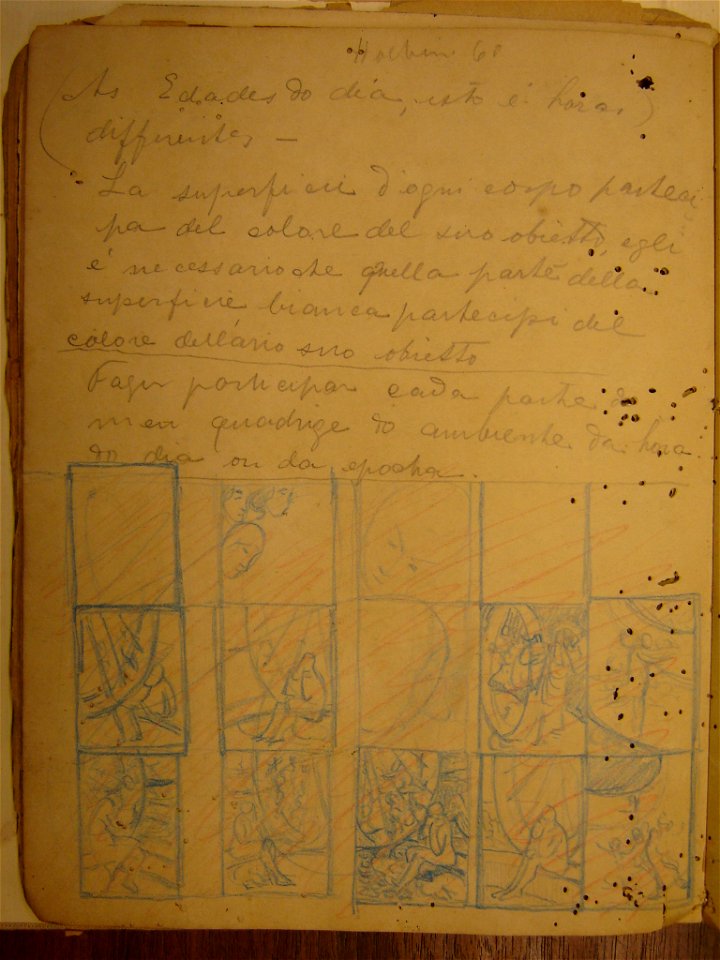 Holbein 68
(As Edades do dia, isto é horas)
differentes —
La superficie d'ogni corpo parteci
pa del colore del suo obietto, egli
è necessario che quella parte della
superficie bianca partecipi del
colore dell'ario suo obietto
Fazer participar cada parte do
meu quadrige do ambiente da hora
do dia ou da epocha.